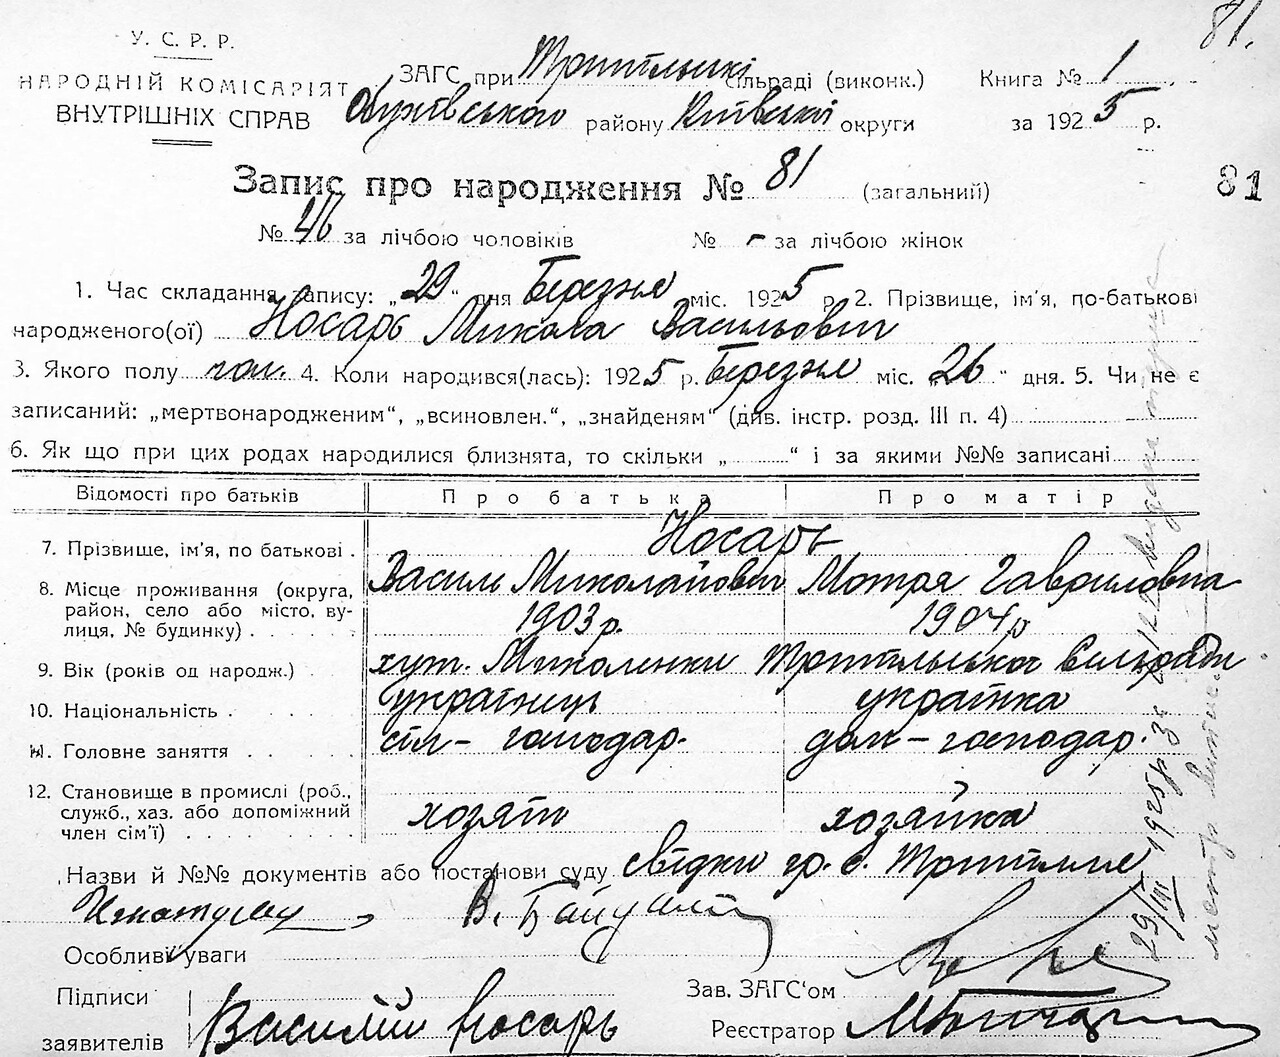 81.
У. С. Р. Р.
НАРОДНІЙ КОМІСАРІЯТ
ВНУТРІШНІХ СПРАВ
ЗАГС при Трипільскі сільраді (виконк.)
Обухівського району Київської округи
Книга № 1
за 1925 р.
Запис про народження № 81 (загальний)
81
№ 46 за лічбою чоловіків № - за лічбою жінок
1. Час складання запису: „29“ дня Березня міс. 1925 р. 2. Прізвище, ім'я, по-батькові
народженого(ої) Носарь Микола Васильович
3. Якого полу чол. 4. Коли народився(лась): 1925 р. Березня міс. „26“ дня. 5. Чи не є
записаний: „мертвонародженим“, „всиновлен.“, „знайденям“ (див. інстр. розд. III п. 4)
6. Як що при цих родах народилися близнята, то скільки „ “ і за якими №№ записані
Відомості про батьків Про батька Про матір
7. Прізвище, ім'я, по батькові . Носарь
Василь Миколайович Мотря Гавриловна
8. Місце проживання (округа,
район, село або місто, ву-
лиця, № будинку) 1903 р. 1904 р
9. Вік (років од народж.) хут. Миколенки Трипільської Сільради
10. Національність українець українка
11. Головне заняття сіл - господар. дом - господар.
12. Становище в промислі (роб.,
служб., хаз. або допоміжний
член сім'ї) хозяїн хозяйка
Назви й №№ документів або постанови суду свідки гр. с. Трипілля
В.
Особливі уваги
Підписи
заявителів Василий Носарь
Зав. ЗАГС'ом
Реєстратор
29/III 1925 р. видана
метр.